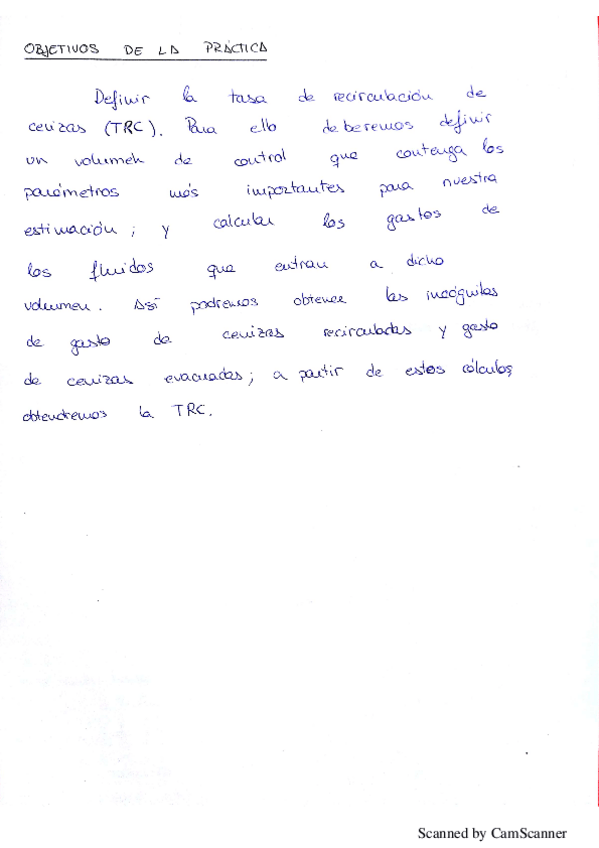 OBJETIVOS DE LA PRÁCTICA
Definir la tasa de recirculación de
cenizas (TRC). Para ello deberemos definir
un volumen de control que contenga los
parámetros más importantes para nuestra
estimación; y calcular los gastos de
los fluidos que entran a dicho
volumen. Así podremos obtener las incógnitas
de gasto de cenizas recirculadas y gasto
de cenizas evacuadas; a partir de estos cálculos,
obtendremos la TRC.
Scanned by CamScanner